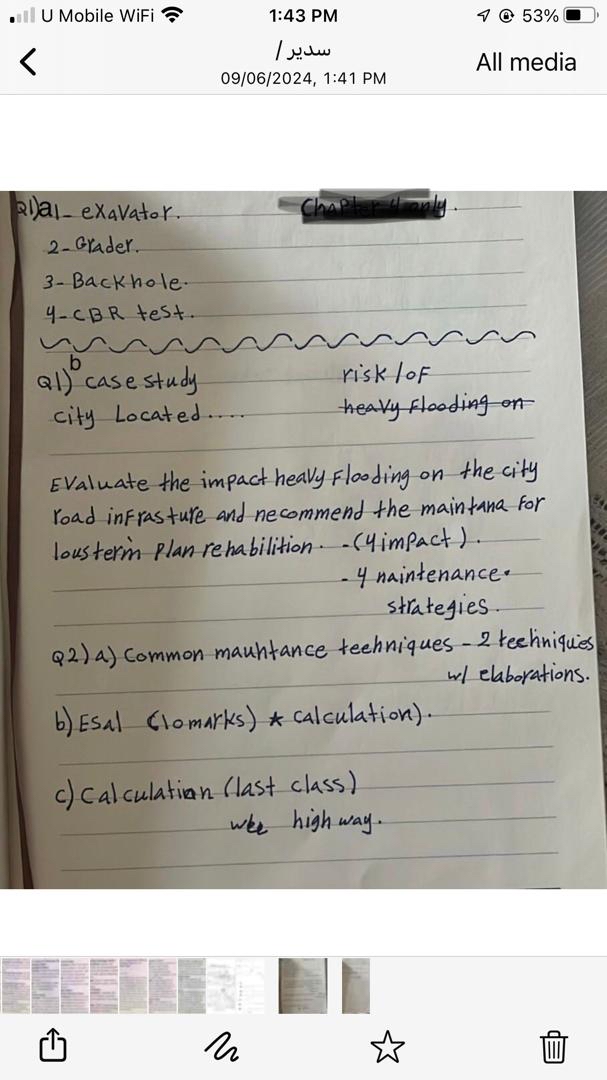 U Mobile WiFi 1:43 PM 53%
سدير /
09/06/2024, 1:41 PM
All media
Q1)a1- exavator. Chapter 4 only.
2- Grader.
3- Backhole.
4- CBR test.
b
Q1) case study risk / of
city Located.... heavy flooding on
Evaluate the impact heavy flooding on the city
road infrasture and necommend the maintana for
lousterm plan rehabilition. -(4 impact).
- 4 naintenance.
strategies.
Q2) a) Common mauhtance teehniques - 2 teehniques
w/ elaborations.
b) Esal (10marks) * calculation).
c) Calculation (last class)
high way.